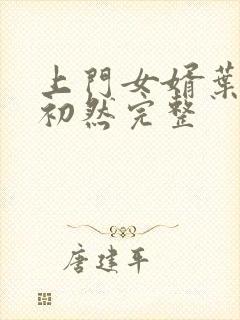 上門女婿葉
初然完整
唐建平